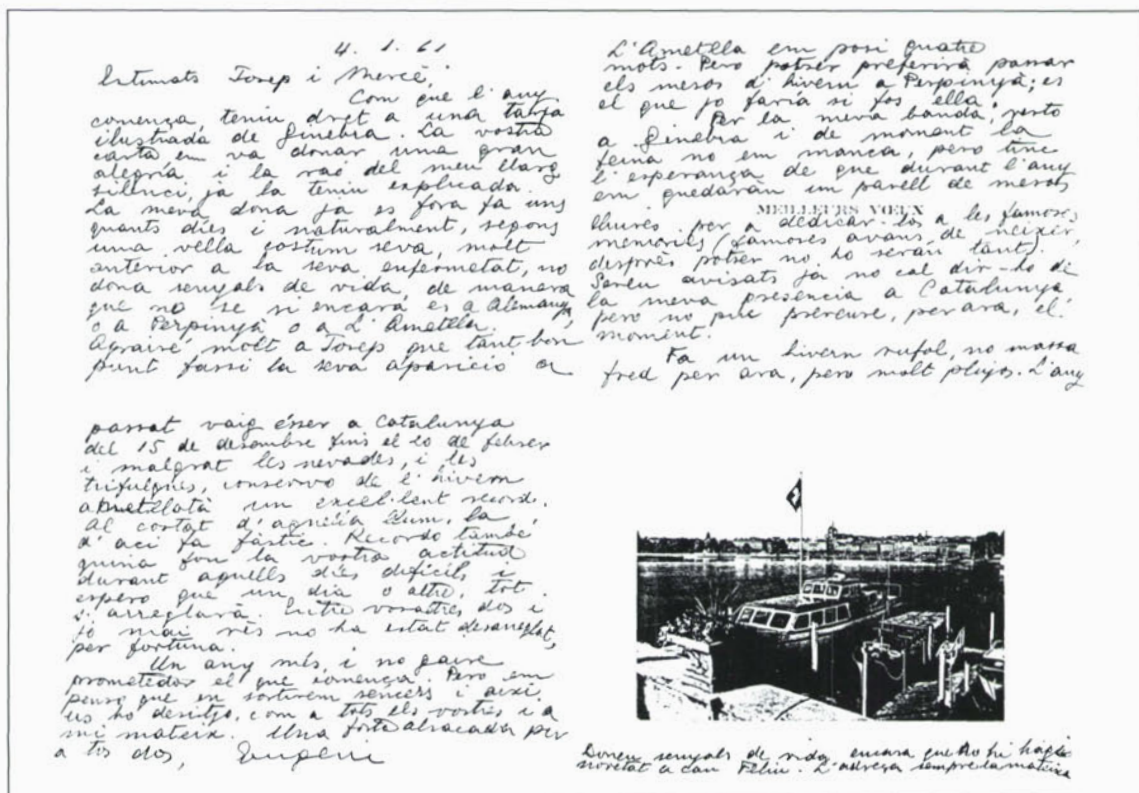 4. 1. 61
Estimats Josep i Mercè,
Com que l'any
comença teniu dret a una tarja
ilustrada de Ginebra. La vostra
carta em va donar una gran
alegria i la raó del meu llarg
silenci, ja la teniu explicada.
La meva dona ja es fora fa uns
quants dies i naturalment, segons
una vella costum seva, molt
anterior a la seva enfermetat, no
dona senyals de vida, de manera
que no se si encara es a Alemanya,
o a Perpinyà o a L'Ametlla.
Agrairé, molt a Josep que tant bon
punt fassi la seva aparició a
L'Ametlla em posi quatre
mots. Pero potser preferirà passar
els mesos d'hivern a Perpinyà; es
el que jo faria si fos ella.
Per la meva banda, resto
a Ginebra i de moment la
feina no em manca, pero tinc
l'esperança de que durant l'any
em quedaràn un parell de mesos
MEILLEURS VŒUX
lliures per a dedicar-los a les famoses
memories (famoses avans de neixer,
desprès potser no ho seràn tant).
Sereu avisats ja no cal dir-ho de
la meva presencia a Catalunya
pero no puc preveure, per ara, el
moment.
Fa un hivern rufol, no massa
fred per ara, pero molt plujos. L'any
passat vaig ésser a Catalunya
del 15 de desembre fins el 20 de febrer
i malgrat les nevades, i les
trifulgues, conservo de l'hivern
ametllatà un excel·lent record.
Al costat d'aquella llum, la
d'aci fa fàstic. Recordo també
quina fou la vostra actitud
durant aquells dies dificils i
espero que un dia o altre, tot
s'arreglarà. Entre vosaltres dos i
jo mai rès no ha estat desarreglat,
per fortuna.
Un any més, i no gaire
prometedor el que comença. Pero em
penso que en sortirem sencers i aixi
us ho desitjo, com a tots els vostres i a
mi mateix. Una forta abraçada per
a tos dos, Eugeni
Doneu senyals de vida encara que no hi hagi
novetat a can Feliu. L'adreça sempre la mateixa